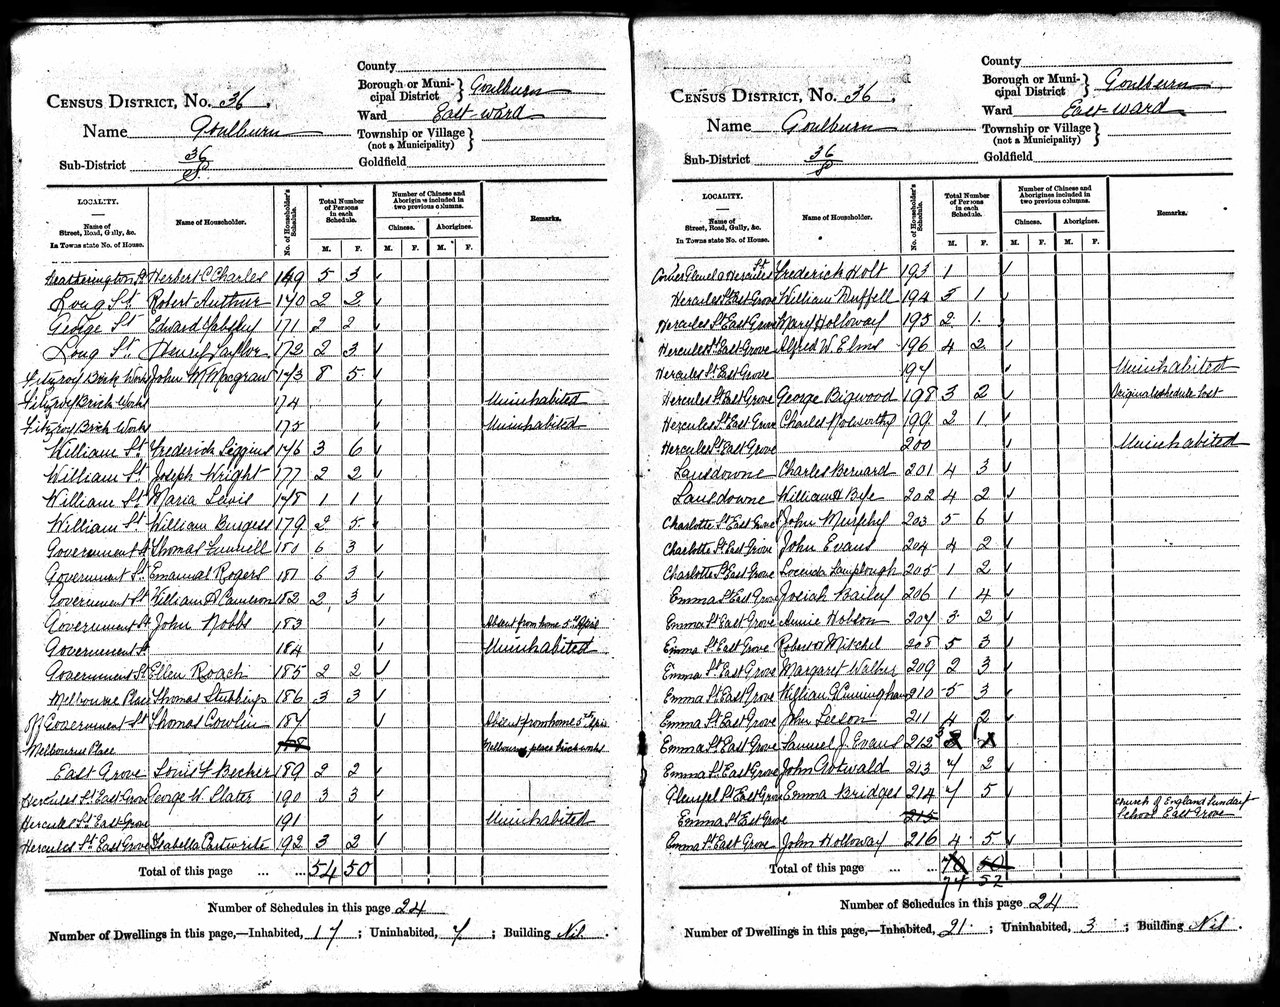 County
Borough or Muni-
cipal District } Goulburn
CENSUS DISTRICT, No. 36.
Ward East-ward
Name Goulburn
Township or Village }
(not a Municipality)
Sub-District 36
Goldfield
LOCALITY.
Name of
Street, Road, Gully, &c.
In Towns state No. of House.
Name of Householder.
No. of Householder's Schedule.
Total Number of Persons in each Schedule.
M. F.
Number of Chinese and Aborigines included in two previous columns.
Chinese. Aborigines.
M. F. M. F.
Remarks.
Heatherington St Herbert C Charles 169 5 3
Long St. Robert Authur 170 2 2
George St Edward 171 2 2
Long St. Henry Taylor 172 2 3
Fitzroy Brick Works John 173 8 5
Fitzroy Brick Works 174 Uninhabited
Fitzroy Brick Works 175 Uninhabited
William St. Frederick Liggins 176 3 6
William St. Joseph Wright 177 2 2
William St. Maria Lewis 178 1 1
William St. William Burgess 179 2 5
Government St Thomas 180 6 3
Government St. Emanuel Rogers 181 6 3
Government St William A Cameron 182 2 3
Government St John Nobbs 183 Absent from home 5th April
Government St 184 Uninhabited
Government St Ellen Roach 185 2 2
Melbourne Place Thomas Stubbings 186 3 3
Off Government St Thomas Cowlin 187 Absent from home 5th Apri
Melbourne Place 188 Melbourne place brickworks
East Grove Louis F Becker 189 2 2
Hercules St. East Grove George W. Slater 190 3 3
Hercules St. East Grove 191 Uninhabited
Hercules St East Grove Isabella Cartwrite 192 3 2
Total of this page ... ... 54 50
Number of Schedules in this page 24
Number of Dwellings in this page,—Inhabited, 17 ; Uninhabited, 7. ; Building Nil.
County
Borough or Muni-
cipal District } Goulburn
CENSUS DISTRICT, No. 36.
Ward East-ward
Name Goulburn
Township or Village }
(not a Municipality)
Sub-District 36
Goldfield
LOCALITY.
Name of
Street, Road, Gully, &c.
In Towns state No. of House.
Name of Householder.
No. of Householder's Schedule.
Total Number of Persons in each Schedule.
M. F.
Number of Chinese and Aborigines included in two previous columns.
Chinese. Aborigines.
M. F. M. F.
Remarks.
Corner Hercules St Frederick Holt 193 1
Hercules St East Grove William Duffell 194 3 1
Hercules St East Grove Mary Holloway 195 2 1
Hercules St East Grove Alfred W. Elms 196 4 2
Hercules St. East Grove 197 Uninhabited
Hercules St East Grove George Bigwood 198 3 2 Original schedule lost
Hercules St East Grove Charles Nolworthy 199 2 1
Hercules St East Grove 200 Uninhabited
Lansdowne Charles Bernard 201 4 3
Lansdowne William H Bye 202 4 2
Charlotte St. East Grove John Murphy 203 5 6
Charlotte St. East Grove John Evans 204 4 2
Charlotte St East Grove Lamplough 205 1 2
Emma St East Grove Josiah Bailey 206 1 4
Emma St East Grove Annie Hobson 207 3 2
Emma St East Grove Robert Mitchel 208 5 3
Emma St. East Grove Margaret Walker 209 2 3
Emma St. East Grove William G Cunningham 210 5 3
Emma St. East Grove John Leeson 211 4 2
Emma St. East Grove Samuel J. Evans 212 3 1
Emma St. East Grove John Gotwald 213 7 2
St East Grove Emma Bridges 214 7 5
Emma St. East Grove 215 Church of England Sunday School East Grove
Emma St East Grove John Holloway 216 4 5
Total of this page ... ... 70 50
74 52
Number of Schedules in this page 24
Number of Dwellings in this page,—Inhabited, 21 ; Uninhabited, 3 ; Building Nil.